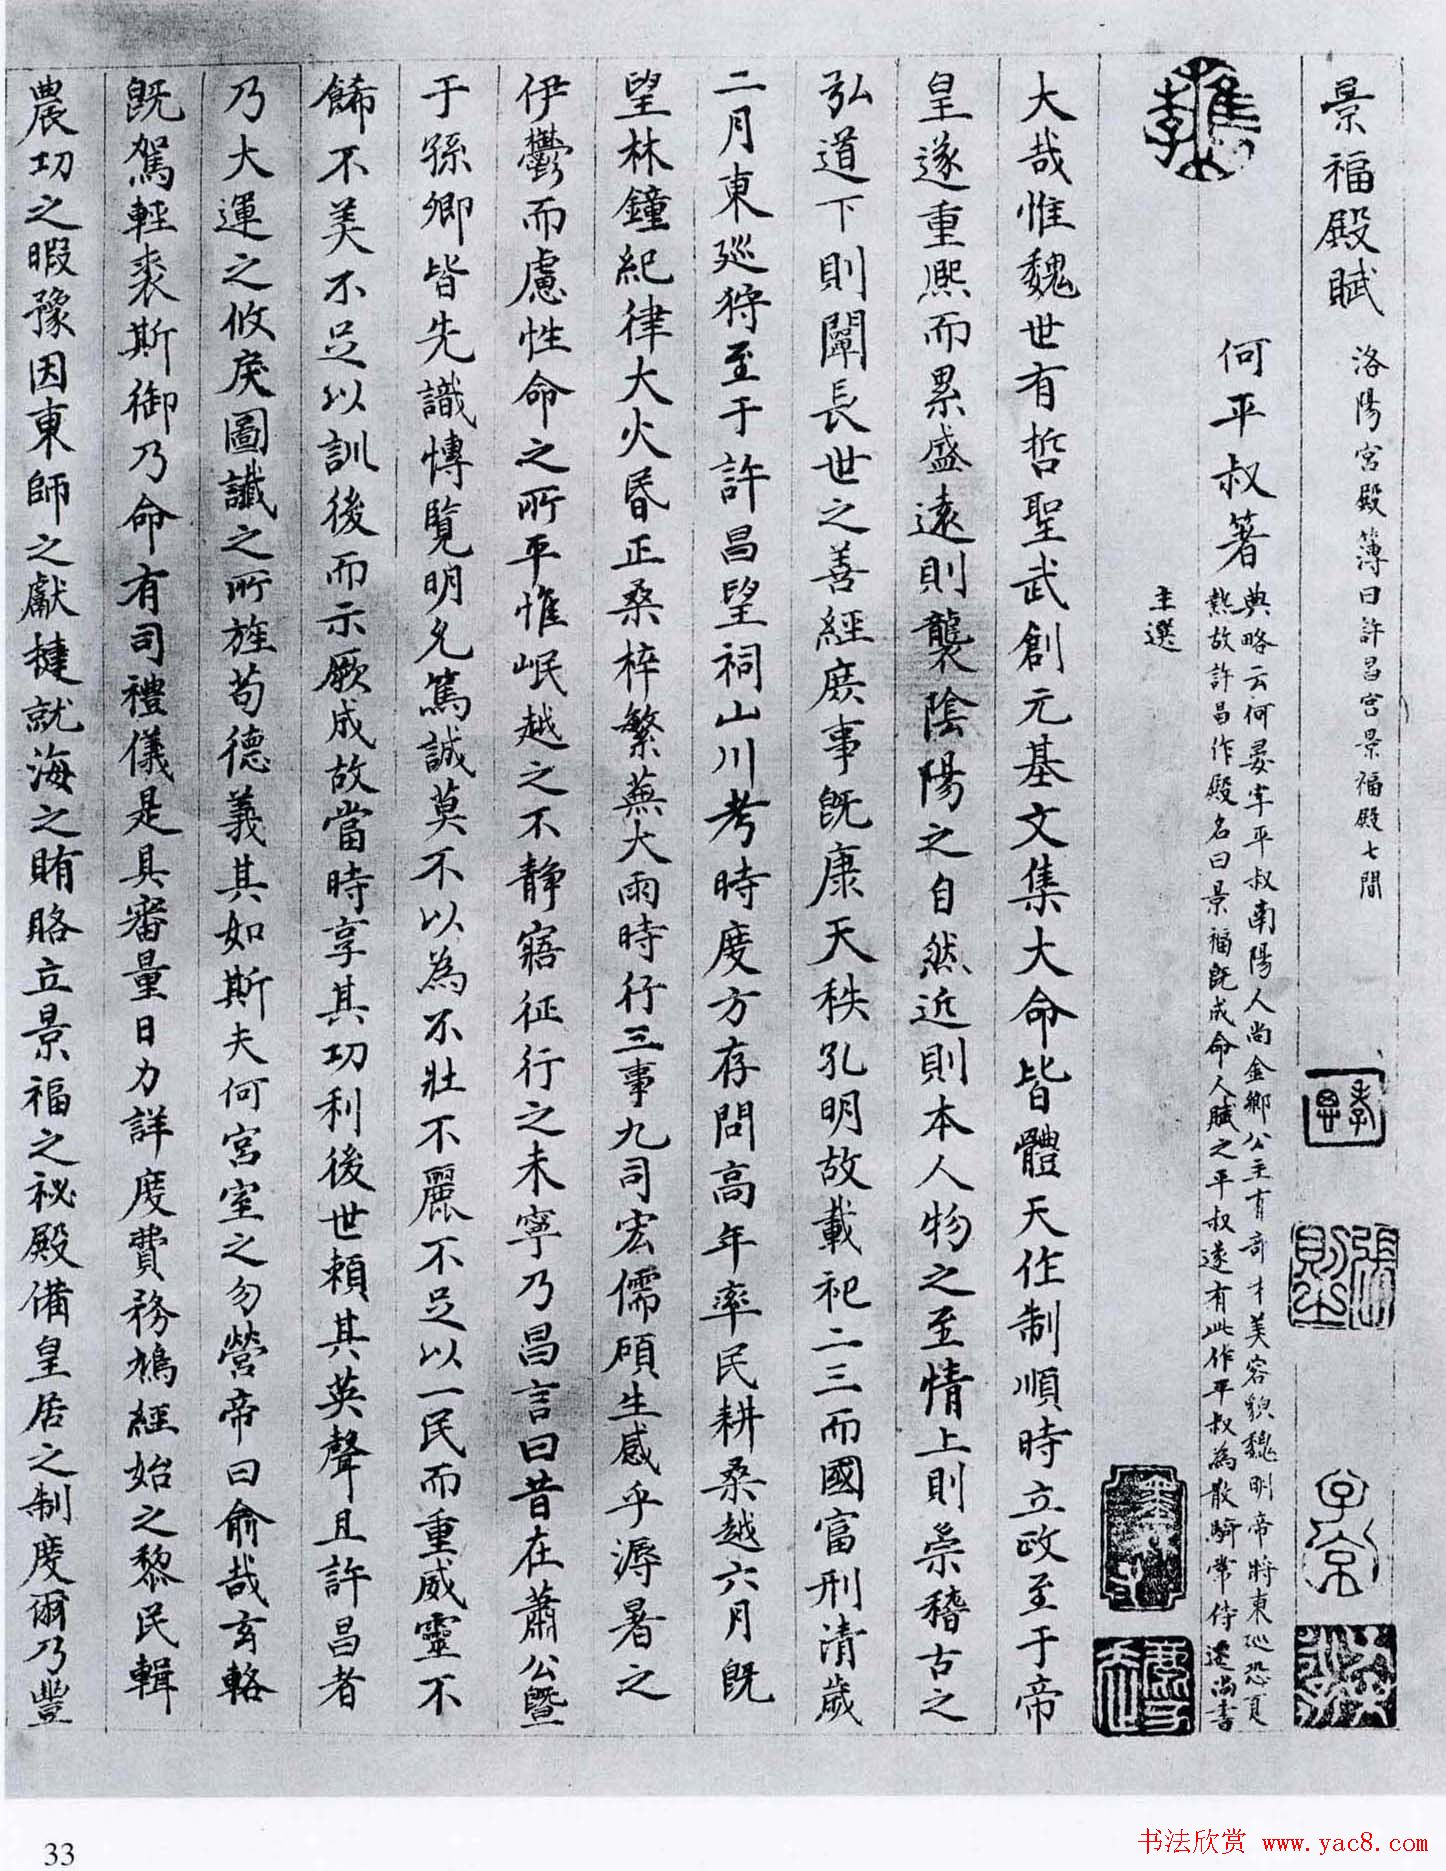 景福殿賦 洛陽宮殿簿曰許昌宮景福殿七間
何平叔著 典略云何晏字平叔南陽人尚金鄉公主有奇才美容貌魏明帝將東巡恐夏
熱故許昌作殿名曰景福既成命人賦之平叔遂有此作平叔為散騎常侍遷尚書
主選
大哉惟魏世有哲聖武創元基文集大命皆體天作制順時立政至于帝
皇遂重熙而累盛遠則襲陰陽之自然近則本人物之至情上則崇稽古之
弘道下則闡長世之善經庶事既康天秩孔明故載祀二三而國富刑清歲
二月東巡狩至于許昌望祠山川考時度方存問高年率民耕桑越六月既
望林鐘紀律大火昏正桑梓繁蕪大雨時行三事九司宏儒碩生感乎溽暑之
伊鬱而慮性命之所平惟岷越之不靜寤征行之未寧乃昌言曰昔在蕭公暨
于孫卿皆先識博覽明允篤誠莫不以為不壯不麗不足以一民而重威靈不
餙不美不足以訓後而示厥成故當時享其功利後世賴其英聲且許昌者
乃大運之攸戾圖讖之所旌苟德義其如斯夫何宮室之勿營帝曰俞哉玄輅
既駕輕裘斯御乃命有司禮儀是具審量日力詳度費務鳩經始之黎民輯
農功之暇豫因東師之獻捷就海之賄賂立景福之祕殿備皇居之制度爾乃豐
33
书法欣赏 www.yac8.com